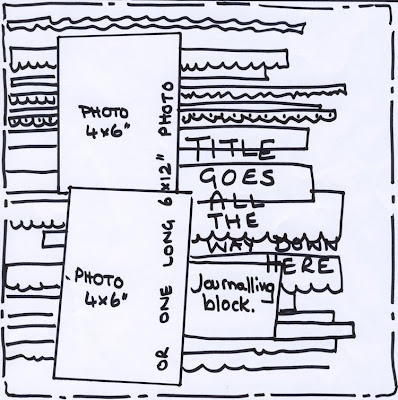 PHOTO
4x6"
OR ONE LONG 6x12" PHOTO
TITLE
GOES
ALL
THE
WAY DOWN
HERE
PHOTO
4x6"
Journalling
block.